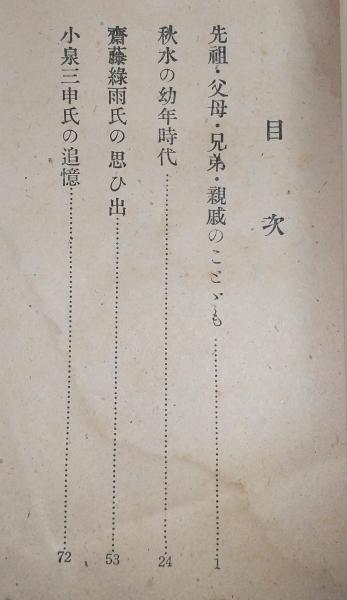 目次
先祖・父母・兄弟・親戚のことゞも……………………1
秋水の幼年時代……………………24
齋藤綠雨氏の思ひ出……………………53
小泉三申氏の追憶……………………72